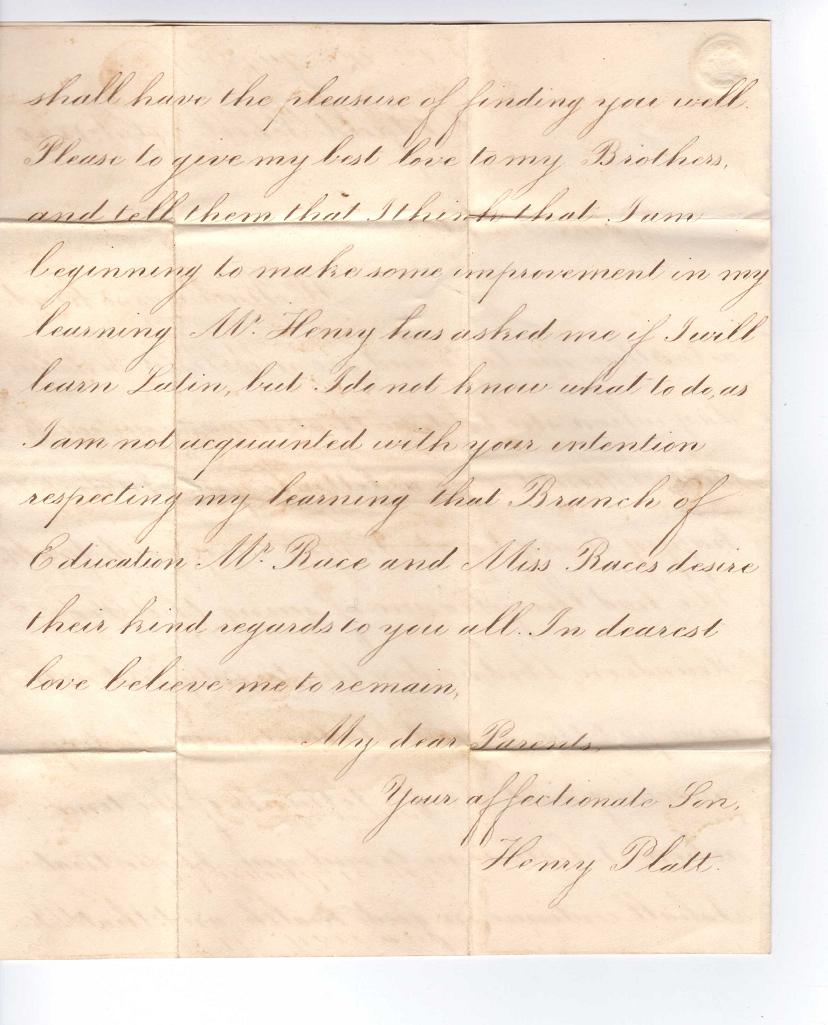 shall have the pleasure of finding you well.
Please to give my best love to my Brothers,
and tell them that I think that I am
beginning to make some improvement in my
learning Mr. Henry has asked me if I will
learn Latin, but I do not know what to do, as
I am not acquainted with your intention
respecting my learning that Branch of
Education Mr. Race and Miss Races desire
their kind regards to you all. In dearest
love believe me to remain,
My dear Parents,
Your affectionate Son,
Henry Platt.